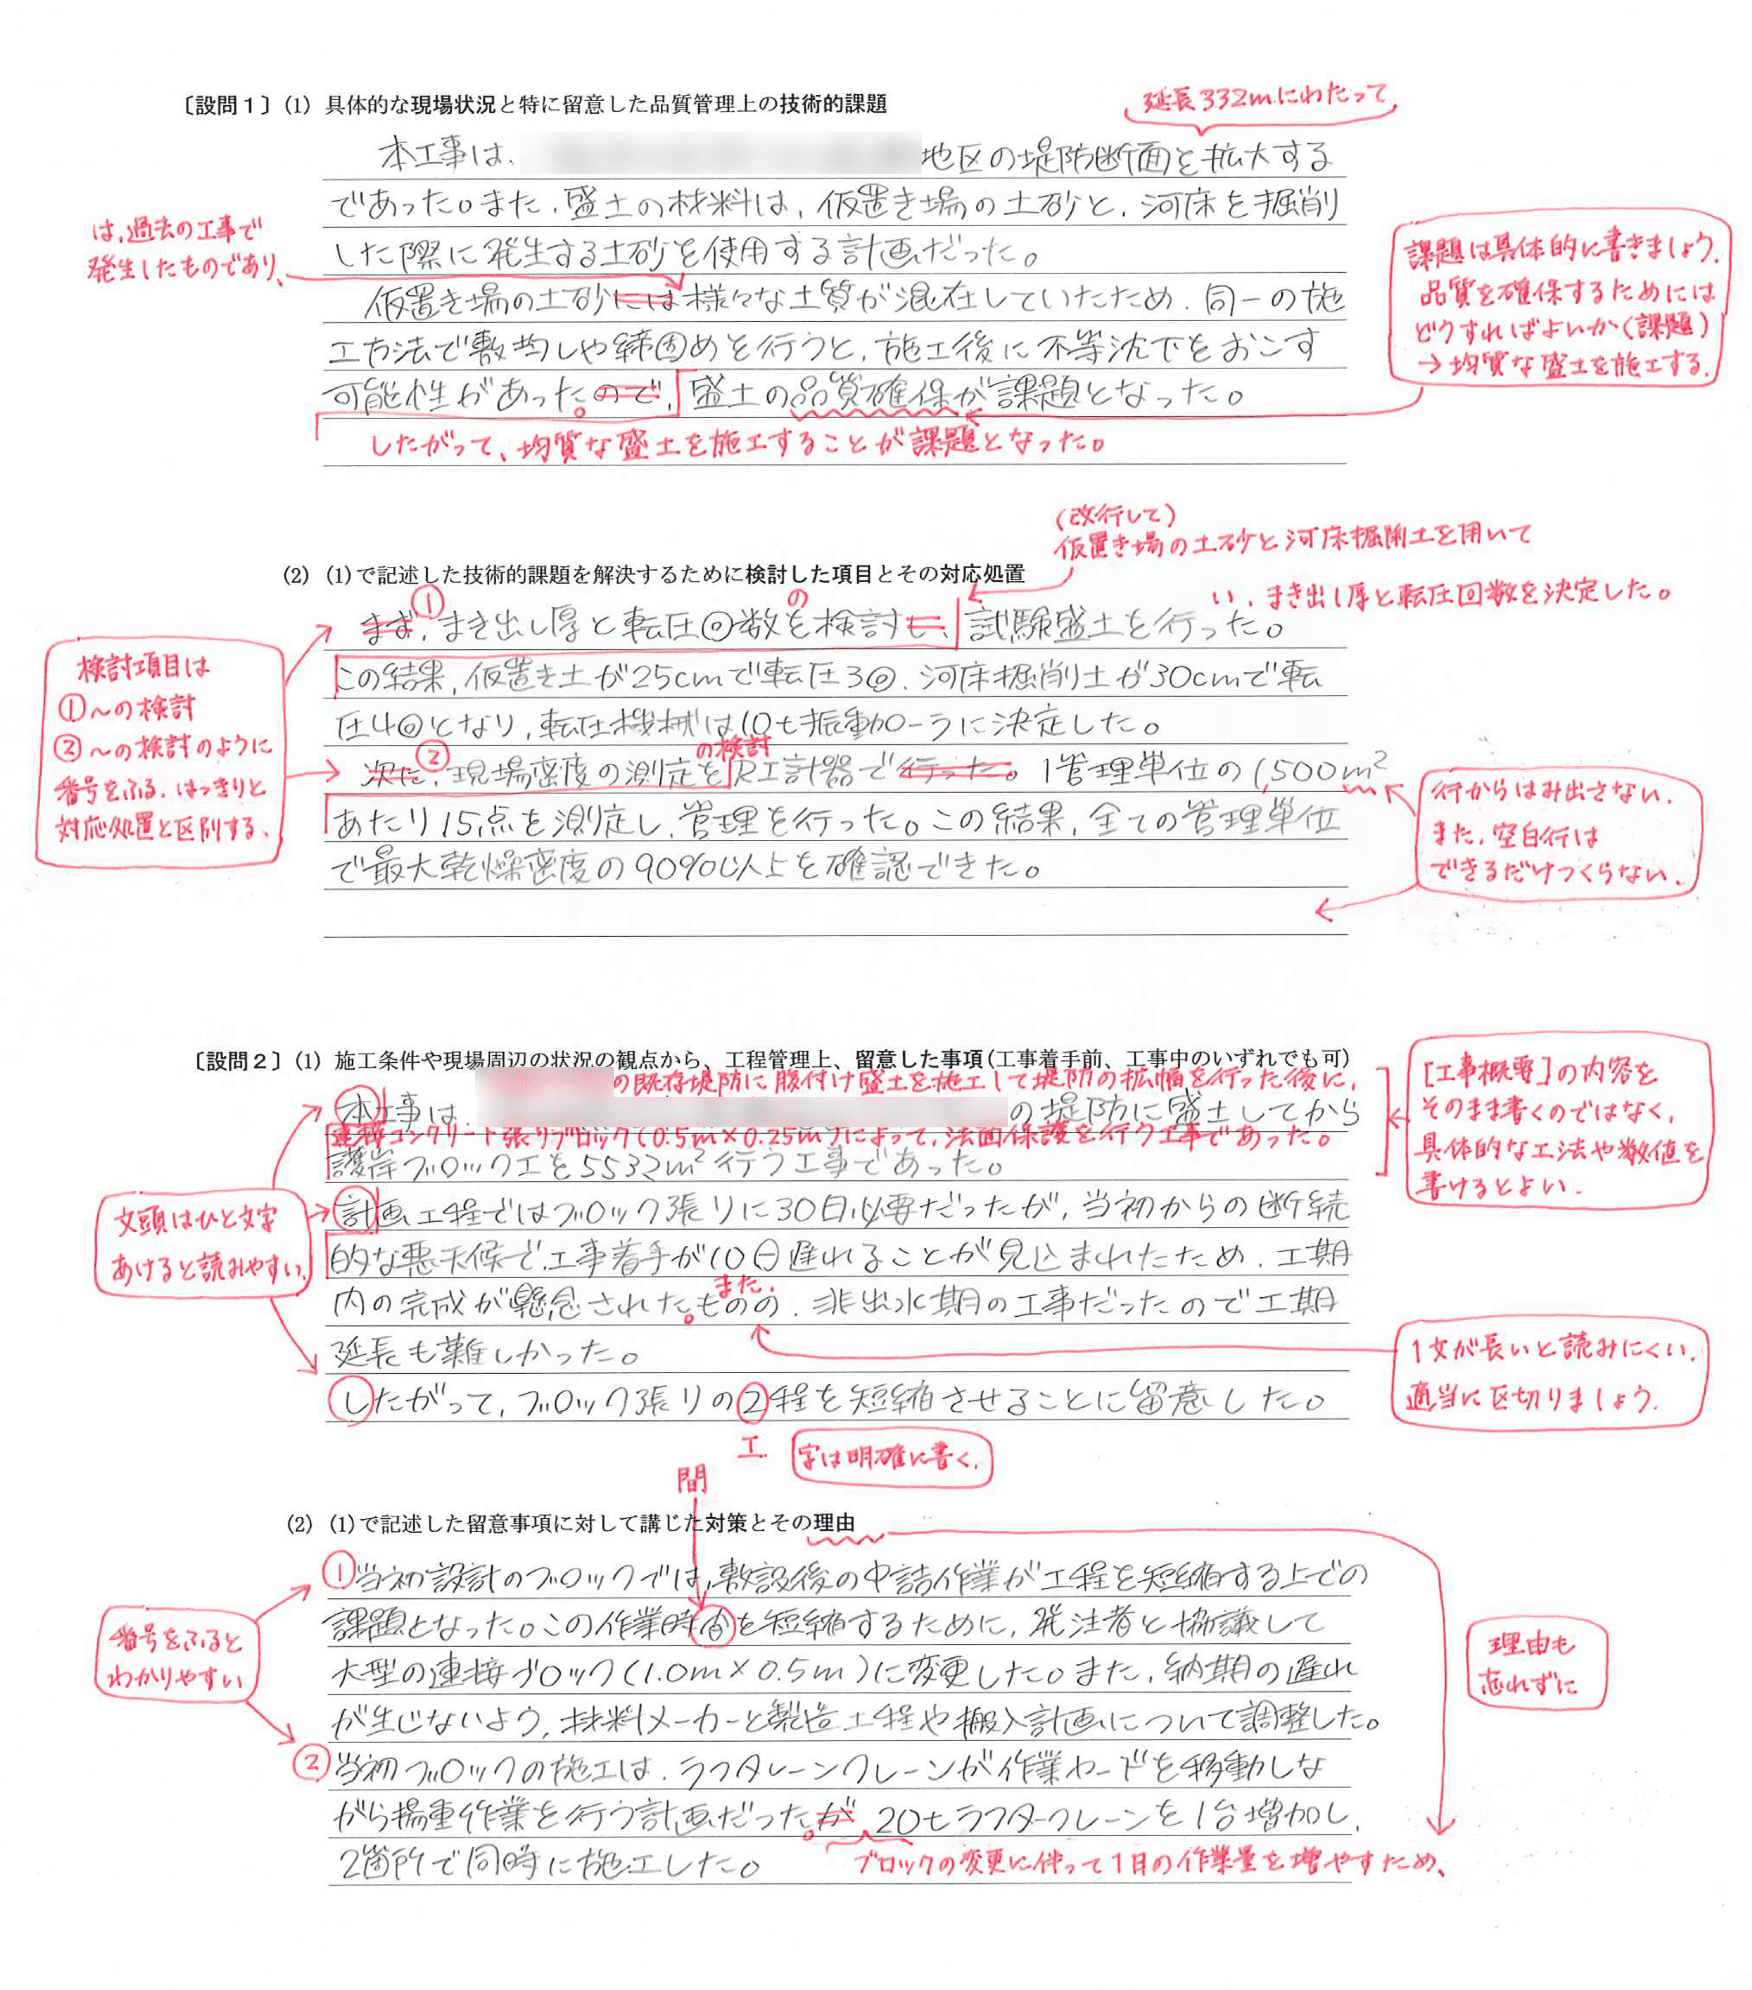 〔設問1〕(1) 具体的な現場状況と特に留意した品質管理上の技術的課題
延長332mにわたって
本工事は、
地区の堤防断面を拡大する
であった。また、盛土の材料は、仮置き場の土砂と、河床を掘削
は、過去の工事で
発生したものであり、
した際に発生する土砂を使用する計画だった。
仮置き場の土砂には様々な土質が混在していたため、同一の施
工方法で敷均しや締固めを行うと、施工後に不等沈下をおこす
可能性があった。ので、盛土の品質確保が課題となった。
したがって、均質な盛土を施工することが課題となった。
課題は具体的に書きましょう。
品質を確保するためには
どうすればよいか(課題)
→均質な盛土を施工する。
(改行して)
仮置き場の土砂と河床掘削土を用いて
(2) (1)で記述した技術的課題を解決するために検討した項目とその対応処置
い、まき出し厚と転圧回数を決定した。
① の
まず、まき出し厚と転圧回数を検討し、試験盛土を行った。
この結果、仮置き土が25cmで転圧3回、河床掘削土が30cmで転
圧4回となり、転圧機械は10t振動ローラに決定した。
② の検討
次に、現場密度の測定をRI計器で行った。1管理単位の1,500m²
あたり15点を測定し、管理を行った。この結果、全ての管理単位
で最大乾燥密度の90%以上を確認できた。
検討項目は
①〜の検討
②〜の検討のように
番号をふる。はっきりと
対応処置と区別する。
行からはみ出さない。
また、空白行は
できるだけつくらない。
〔設問2〕(1) 施工条件や現場周辺の状況の観点から、工程管理上、留意した事項(工事着手前、工事中のいずれでも可)
の既存堤防に腹付け盛土を施工して堤防の拡幅を行った後に、
本工事は、
の堤防に盛土してから
連接コンクリート張りブロック(0.5m×0.25m)によって、法面保護を行う工事であった。
護岸ブロック工を5532m²行う工事であった。
計画工程ではブロック張りに30日必要だったが、当初からの断続
的な悪天候で、工事着手が10日遅れることが見込まれたため、工期
また、
内の完成が懸念された。ものの、非出水期の工事だったので工期
延長も難しかった。
したがって、ブロック張りの工程を短縮させることに留意した。
工
字は明確に書く。
文頭はひと文字
あけると読みやすい。
[工事概要]の内容を
そのまま書くのではなく、
具体的な工法や数値を
書けるとよい。
1文が長いと読みにくい。
適当に区切りましょう。
間
(2) (1)で記述した留意事項に対して講じた対策とその理由
①当初設計のブロックでは、敷設後の中詰作業が工程を短縮する上での
課題となった。この作業時間を短縮するために、発注者と協議して
大型の連接ブロック(1.0m×0.5m)に変更した。また、納期の遅れ
が生じないよう、材料メーカーと製造工程や搬入計画について調整した。
②当初ブロックの施工は、ラフタレーンクレーンが作業ヤードを移動しな
がら揚重作業を行う計画だった。が、20tラフタークレーンを1台増加し、
2箇所で同時に施工した。
ブロックの変更に伴って1日の作業量を増やすため、
番号をふると
わかりやすい
理由も
忘れずに